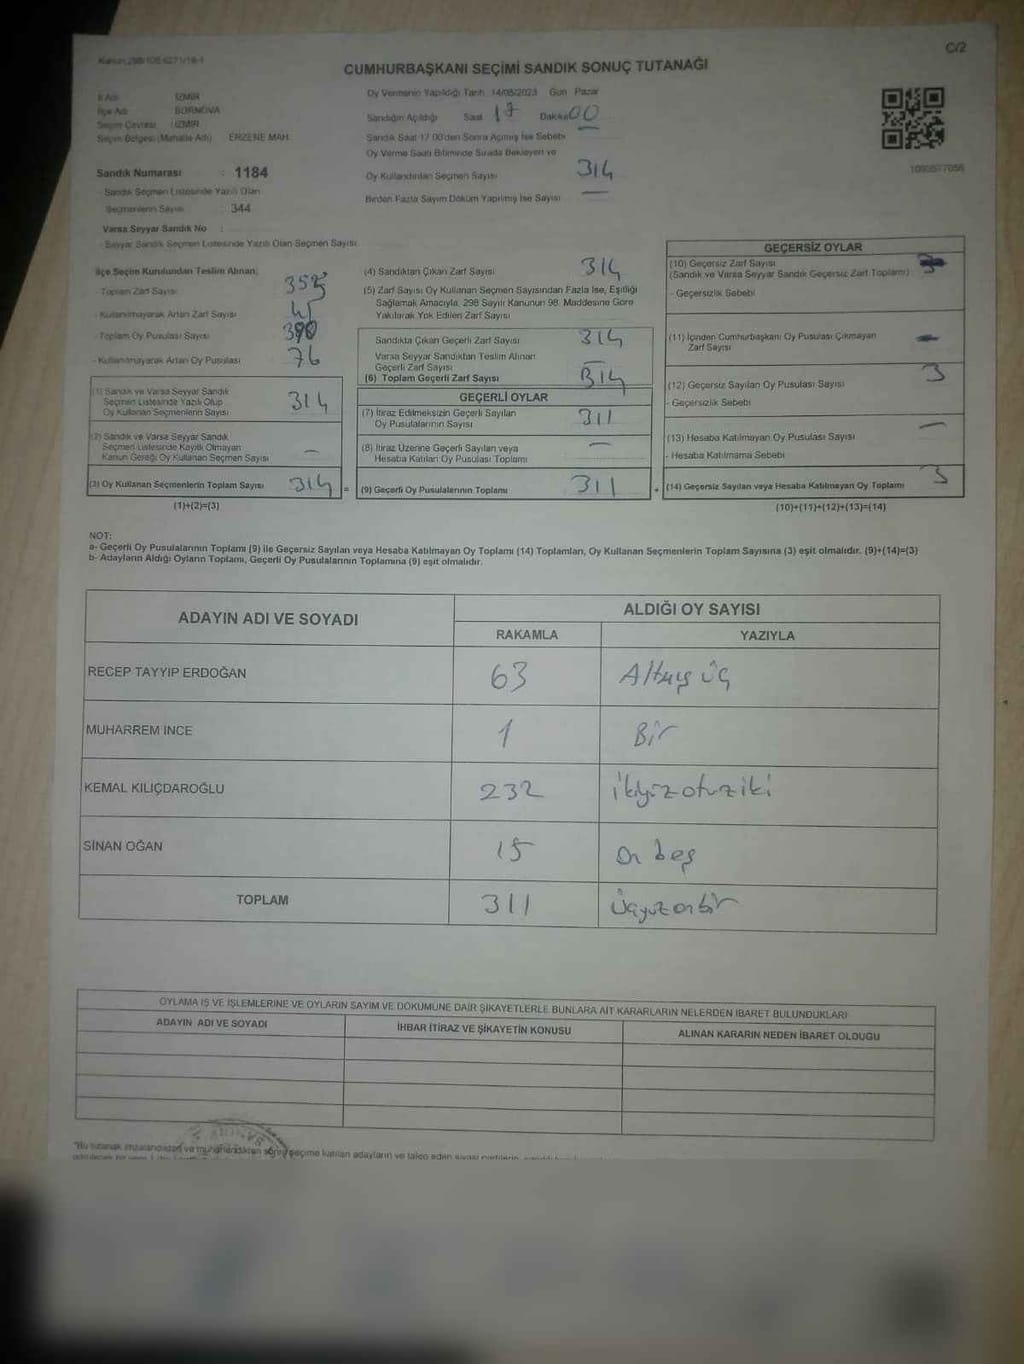 C/2
CUMHURBAŞKANI SEÇİMİ SANDIK SONUÇ TUTANAĞI
İl Adı İZMİR
İlçe Adı BORNOVA
Seçim Çevresi : İZMİR
Seçim Bölgesi (Mahalle Adı) ERZENE MAH.
Oy Vermenin Yapıldığı Tarih 14/05/2023 Gün Pazar
Sandığın Açıldığı Saat 17 Dakika 00
Sandık Saat 17.00'den Sonra Açılmış İse Sebebi
Oy Verme Saati Bitiminde Sırada Bekleyen ve
Oy Kullandırılan Seçmen Sayısı 314
Birden Fazla Sayım Döküm Yapılmış İse Sayısı —
Sandık Numarası : 1184
- Sandık Seçmen Listesinde Yazılı Olan
Seçmenlerin Sayısı : 344
Varsa Seyyar Sandık No :
- Seyyar Sandık Seçmen Listesinde Yazılı Olan Seçmen Sayısı
İlçe Seçim Kurulundan Teslim Alınan;
- Toplam Zarf Sayısı
- Kullanılmayarak Artan Zarf Sayısı 45
- Toplam Oy Pusulası Sayısı 390
- Kullanılmayarak Artan Oy Pusulası 76
(1) Sandık ve Varsa Seyyar Sandık
Seçmen Listesinde Yazılı Olup
Oy Kullanan Seçmenlerin Sayısı 314
(2) Sandık ve Varsa Seyyar Sandık
Seçmen Listesinde Kayıtlı Olmayan
Kanun Gereği Oy Kullanan Seçmen Sayısı —
(3) Oy Kullanan Seçmenlerin Toplam Sayısı 314 =
(1)+(2)=(3)
(4) Sandıktan Çıkan Zarf Sayısı 314
(5) Zarf Sayısı Oy Kullanan Seçmen Sayısından Fazla İse, Eşitliği
Sağlamak Amacıyla, 298 Sayılı Kanunun 98. Maddesine Göre
Yakılarak Yok Edilen Zarf Sayısı
Sandıkta Çıkan Geçerli Zarf Sayısı 314
Varsa Seyyar Sandıktan Teslim Alınan
Geçerli Zarf Sayısı —
(6) Toplam Geçerli Zarf Sayısı 314
GEÇERLİ OYLAR
(7) İtiraz Edilmeksizin Geçerli Sayılan
Oy Pusulalarının Sayısı 311
(8) İtiraz Üzerine Geçerli Sayılan veya
Hesaba Katılan Oy Pusulası Toplamı —
(9) Geçerli Oy Pusulalarının Toplamı 311 +
GEÇERSİZ OYLAR
(10) Geçersiz Zarf Sayısı
(Sandık ve Varsa Seyyar Sandık Geçersiz Zarf Toplamı)
- Geçersizlik Sebebi
(11) İçinden Cumhurbaşkanı Oy Pusulası Çıkmayan
Zarf Sayısı
(12) Geçersiz Sayılan Oy Pusulası Sayısı 3
- Geçersizlik Sebebi
(13) Hesaba Katılmayan Oy Pusulası Sayısı —
- Hesaba Katılmama Sebebi
(14) Geçersiz Sayılan veya Hesaba Katılmayan Oy Toplamı 3
(10)+(11)+(12)+(13)=(14)
NOT:
a- Geçerli Oy Pusulalarının Toplamı (9) ile Geçersiz Sayılan veya Hesaba Katılmayan Oy Toplamı (14) Toplamları, Oy Kullanan Seçmenlerin Toplam Sayısına (3) eşit olmalıdır. (9)+(14)=(3)
b- Adayların Aldığı Oyların Toplamı, Geçerli Oy Pusulalarının Toplamına (9) eşit olmalıdır.
ADAYIN ADI VE SOYADI ALDIĞI OY SAYISI
RAKAMLA YAZIYLA
RECEP TAYYİP ERDOĞAN 63 Altmış üç
MUHARREM İNCE 1 Bir
KEMAL KILIÇDAROĞLU 232 ikiyüzotuziki
SİNAN OĞAN 15 On beş
TOPLAM 311 Üçyüzonbir
OYLAMA İŞ VE İŞLEMLERİNE VE OYLARIN SAYIM VE DÖKÜMÜNE DAİR ŞİKAYETLERLE BUNLARA AİT KARARLARIN NELERDEN İBARET BULUNDUKLARI
ADAYIN ADI VE SOYADI İHBAR İTİRAZ VE ŞİKAYETİN KONUSU ALINAN KARARIN NEDEN İBARET OLDUĞU